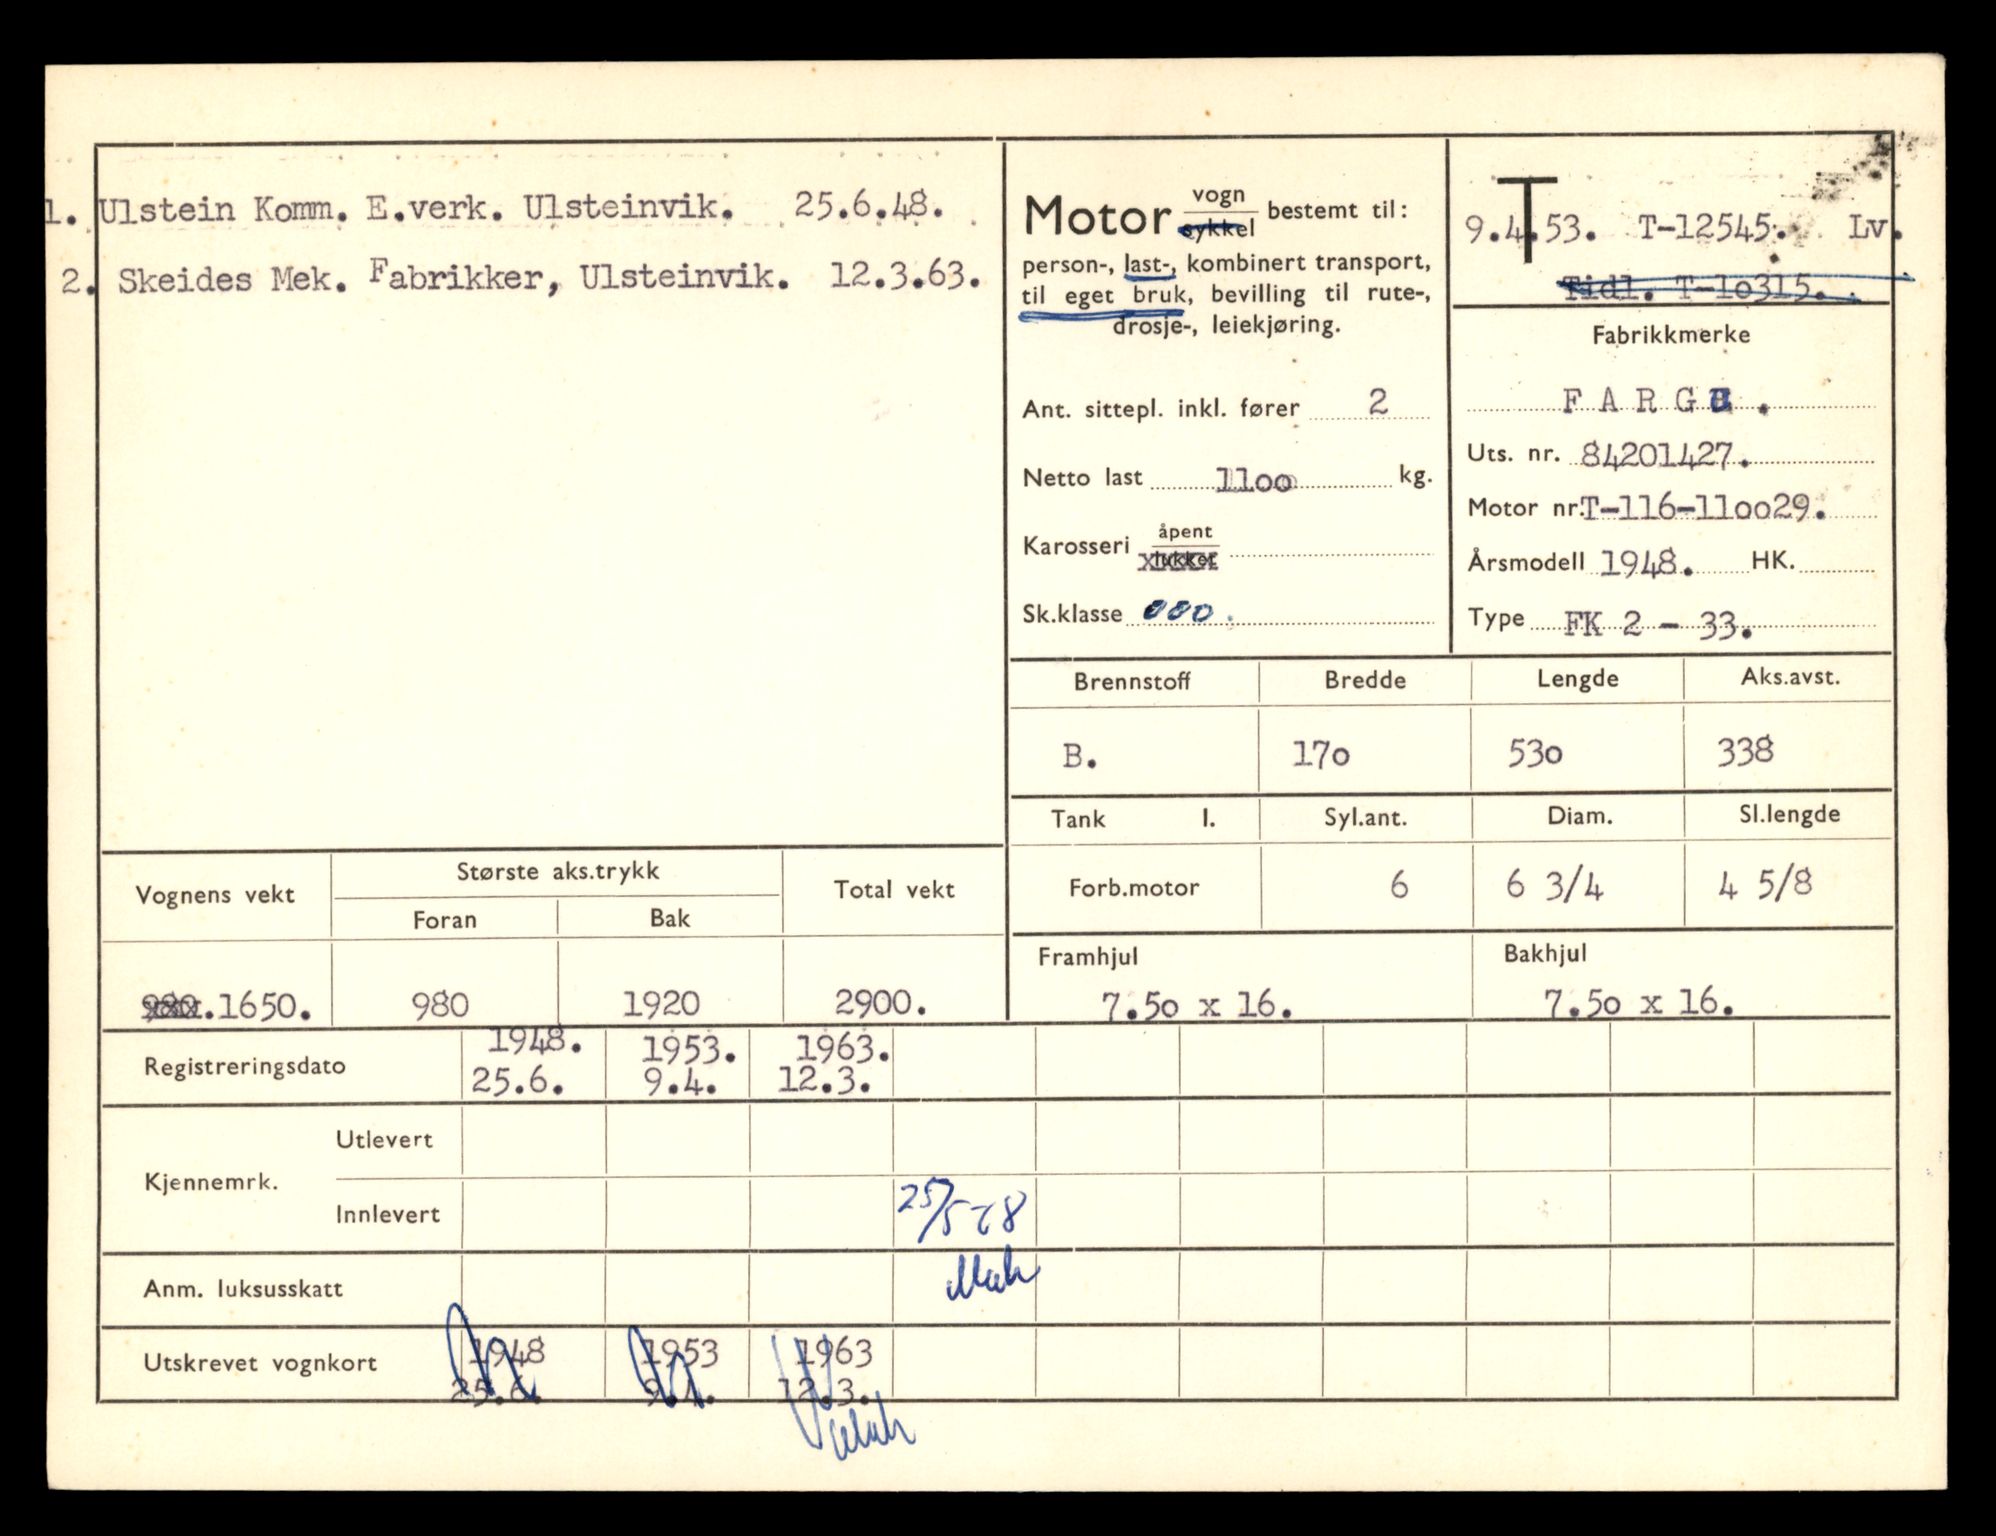 1. Ulstein Komm. E.verk. Ulsteinvik. 25.6.48.
2. Skeides Mek. Fabrikker, Ulsteinvik. 12.3.63.
Motor vogn
sykkel bestemt til:
person-, last-, kombinert transport,
til eget bruk, bevilling til rute-,
drosje-, leiekjøring.
Ant. sittepl. inkl. fører 2
Netto last 1100 kg.
Karosseri åpent
lukket
Sk.klasse 000.
T
9.4.53. T-12545. Lv.
Tidl. T-10315.
Fabrikkmerke
FARGO.
Uts. nr. 84201427.
Motor nr. T-116-110029.
Årsmodell 1948. HK.
Type FK 2 - 33.
Brennstoff Bredde Lengde Aks.avst.
B. 170 530 338
Tank l. Syl.ant. Diam. Sl.lengde
Forb.motor 6 6 3/4 4 5/8
Framhjul Bakhjul
7.50 x 16. 7.50 x 16.
Vognens vekt Største aks.trykk Total vekt
Foran Bak
980.1650. 980 1920 2900.
Registreringsdato 1948. 1953. 1963.
25.6. 9.4. 12.3.
Kjennemrk. Utlevert
Innlevert 25/5-68
Anm. luksusskatt
Utskrevet vognkort 1948 1953 1963
25.6. 9.4. 12.3.